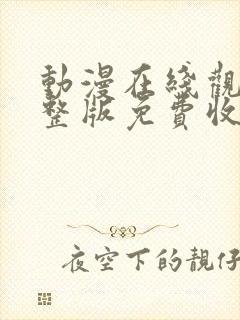 動漫在綫觀
整版免費收
夜空下的靚仔